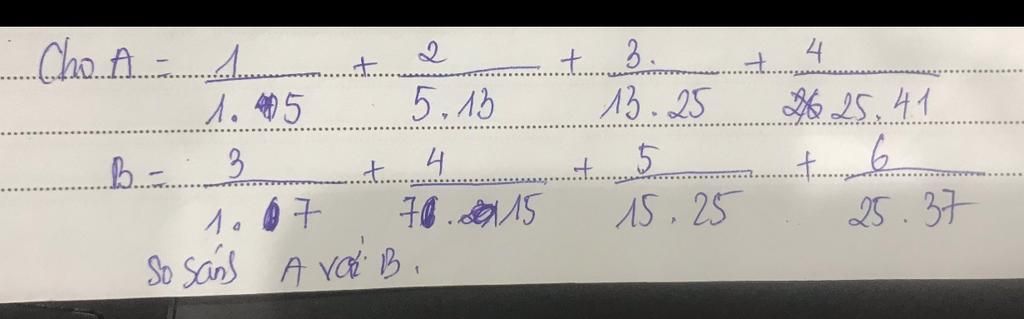 Cho A = 1/1.5 + 2/5.13 + 3./13.25 + 4/25.41
B = 3/1.7 + 4/7.15 + 5/15.25 + 6/25.37
So sánh A với B.